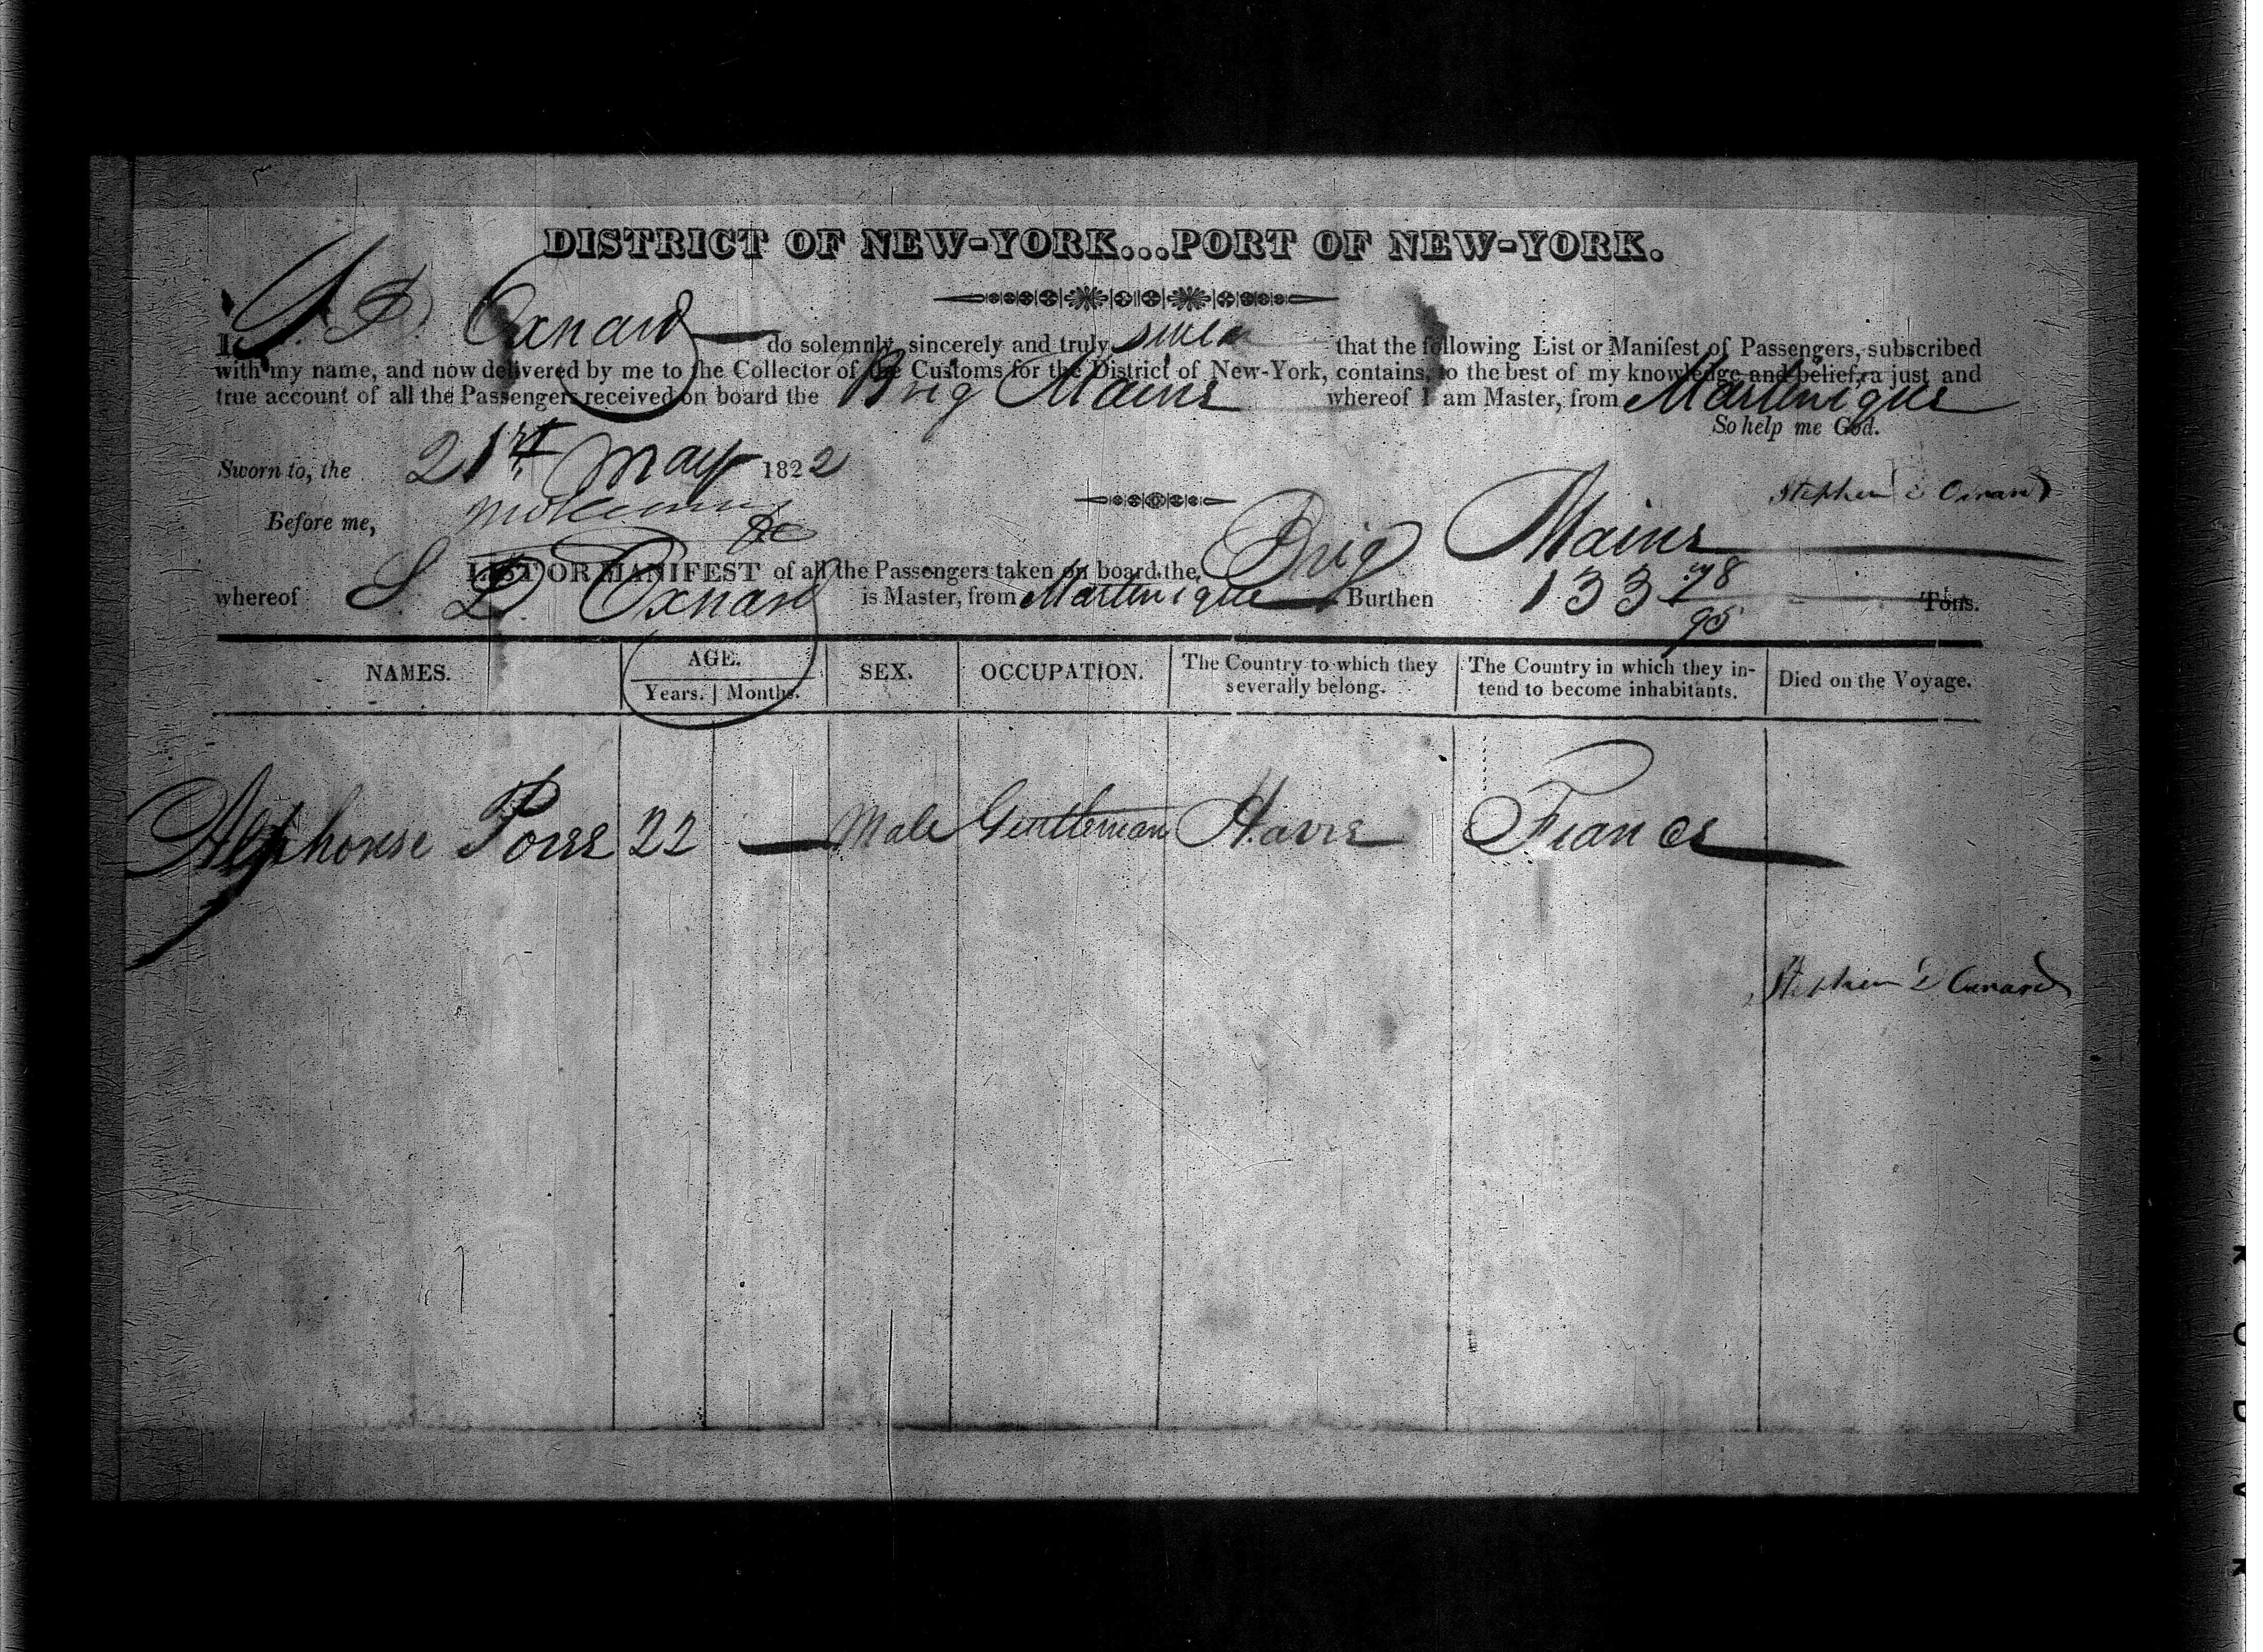 DISTRICT OF NEW-YORK...PORT OF NEW-YORK.
I, S. D. Oxnard do solemnly, sincerely and truly swear that the following List or Manifest of Passengers, subscribed
with my name, and now delivered by me to the Collector of the Customs for the District of New-York, contains, to the best of my knowledge and belief, a just and
true account of all the Passengers received on board the Brig Maine whereof I am Master, from Martinique
So help me God.
Sworn to, the 21st May 1822
Stephen D Oxnard
Before me,
LIST OR MANIFEST of all the Passengers taken on board the Brig Maine
whereof S. D. Oxnard is Master, from Martinique Burthen 133 78/95 Tons.
NAMES. AGE. SEX. OCCUPATION. The Country to which they severally belong. The Country in which they intend to become inhabitants. Died on the Voyage.
Years. Months.
Alphonse 22 Male Gentleman Havre France
Stephen D Oxnard
KODAK